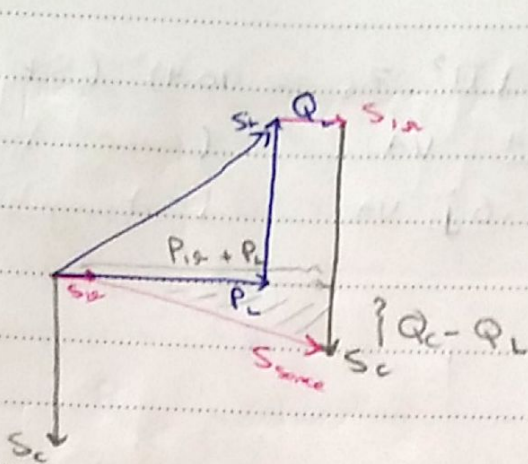 S_L Q_L S_1Ω
P_1Ω + P_L
S_1Ω P_L
Q_C - Q_L
S_source S_C
S_C